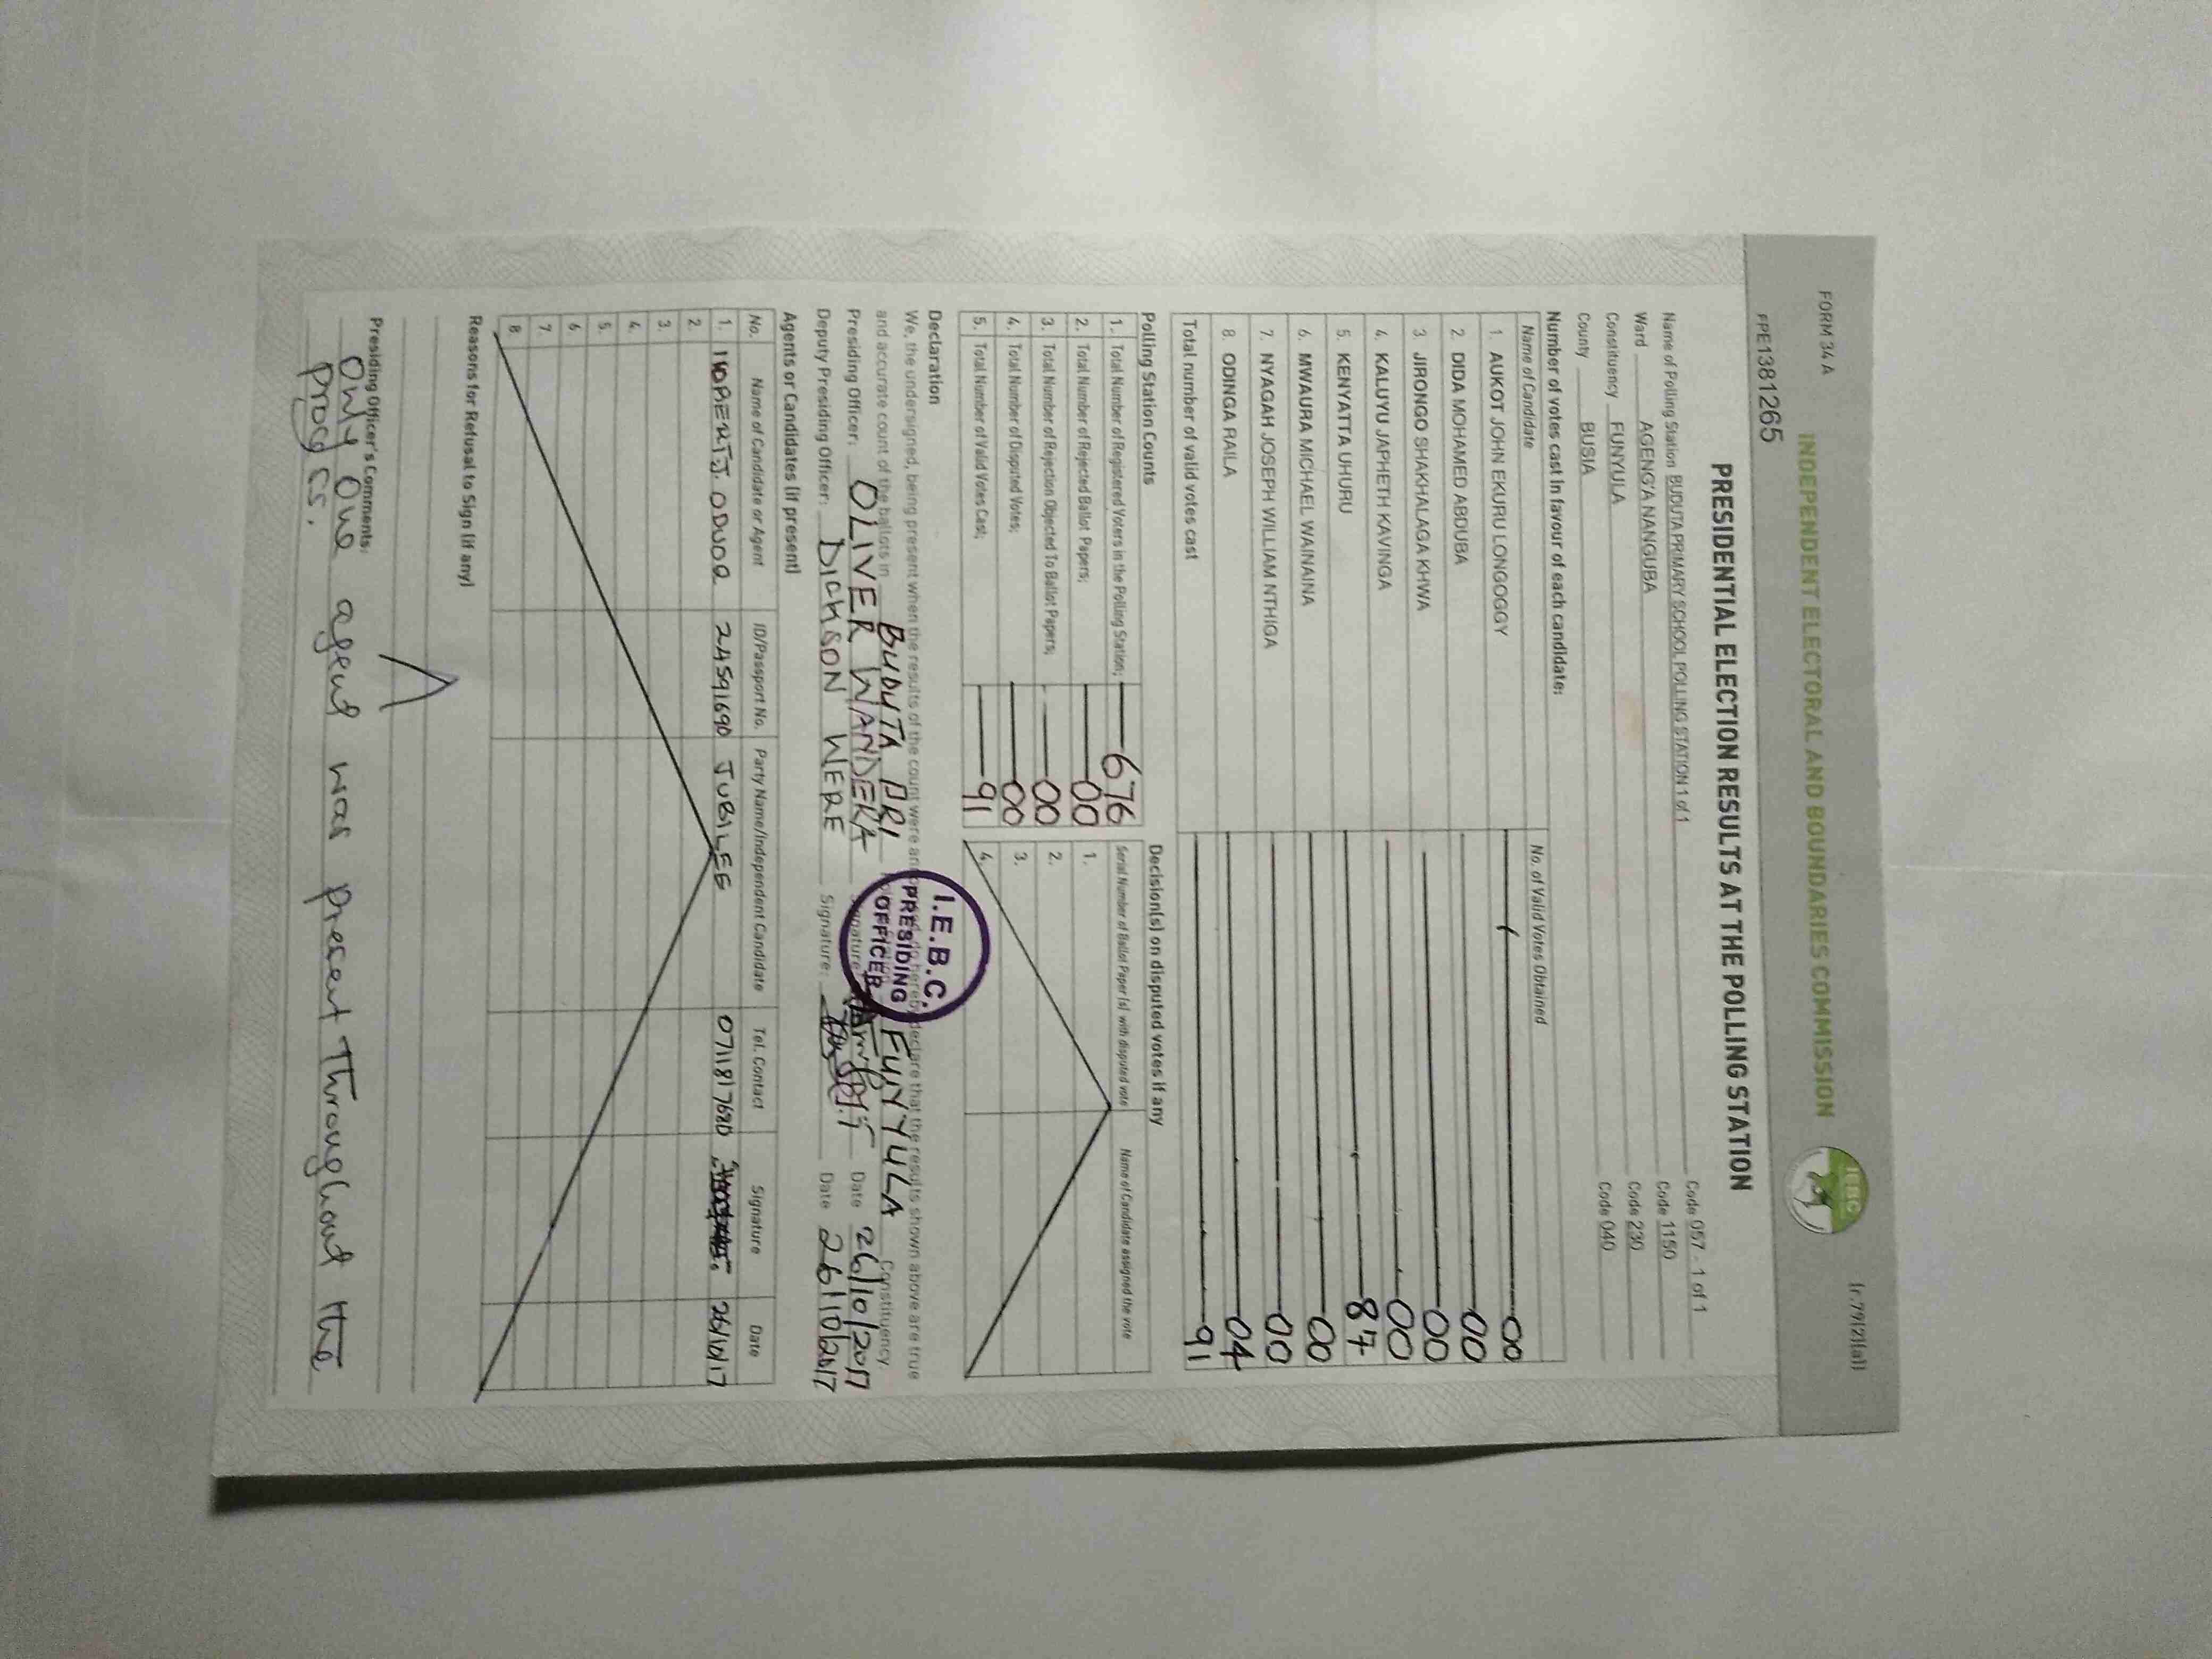 FORM 34A
(r.79(2)(a))
INDEPENDENT ELECTORAL AND BOUNDARIES COMMISSION
IEBC
FPE1381265
PRESIDENTIAL ELECTION RESULTS AT THE POLLING STATION
Name of Polling Station BUDUTA PRIMARY SCHOOL POLLING STATION 1 of 1 Code 057 - 1 of 1
Ward AGENG'A NANGUBA Code 1150
Constituency FUNYULA Code 230
County BUSIA Code 040
Number of votes cast in favour of each candidate:
Name of Candidate No. of Valid Votes Obtained
1. AUKOT JOHN EKURU LONGOGGY 00
2. DIDA MOHAMED ABDUBA 00
3 JIRONGO SHAKHALAGA KHWA 00
4. KALUYU JAPHETH KAVINGA 00
5. KENYATTA UHURU 87
6. MWAURA MICHAEL WAINAINA 00
7. NYAGAH JOSEPH WILLIAM NTHIGA 00
8. ODINGA RAILA 04
Total number of valid votes cast 91
Polling Station Counts
1. Total Number of Registered Voters in the Polling Station; 676
2. Total Number of Rejected Ballot Papers; 00
3. Total Number of Rejection Objected To Ballot Papers; 00
4. Total Number of Disputed Votes; 00
5. Total Number of Valid Votes Cast; 91
Decision(s) on disputed votes if any
Serial Number of Ballot Paper (s) with disputed vote Name of Candidate assigned the vote
1.
2.
3.
4.
Declaration
We, the undersigned, being present when the results of the count were announced, do hereby declare that the results shown above are true
and accurate count of the ballots in BUDUTA PRI FUNYULA Constituency.
Presiding Officer: OLIVER WANDERA Signature: Date 26/10/2017
Deputy Presiding Officer: DICKSON WERE Signature: Date 26/10/2017
I.E.B.C.
PRESIDING
OFFICER
Agents or Candidates (if present)
No. Name of Candidate or Agent ID/Passport No. Party Name/Independent Candidate Tel. Contact Signature Date
1. ODUOR 24591690 JUBILEE 0711817680 26/10/17
2.
3.
4.
5.
6
7.
8.
Reasons for Refusal to Sign (if any)
Presiding Officer's Comments:
Only one agent was present throughout the
process.